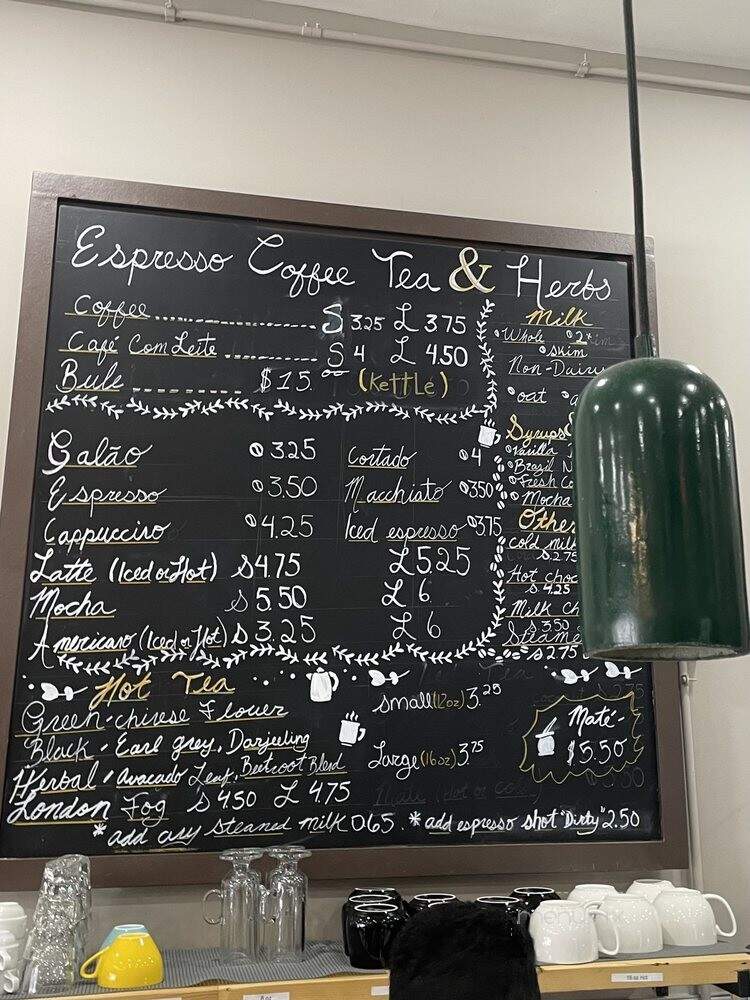 Espresso Coffee Tea & Herbs
Coffee S 3.25 L 3.75
Café Com Leite S 4 L 4.50
Bule $15. (Kettle)
Galão 3.25
Espresso 3.50
Cappuccino 4.25
Cortado 4
Macchiato 350
Iced espresso 375
Latte (Iced or Hot) S 4.75 L 5.25
Mocha S 5.50 L 6
Americano (Iced or Hot) S 3.25 L 6
Milk
Whole 2%
Skim
Non-Dairy
oat
Syrups
Vanilla
Brazil N
Fresh Co
Mocha
Other
Cold milk
$2.75
Hot choc
$4.25
Milk Ch
$3.50
Steame
$2.75
Hot Tea
Green-chinese Flower
Black - Earl grey, Darjeeling
Herbal / Avocado Leaf, Beetroot Blend
London Fog S 4.50 L 4.75
small (12oz) 3.25
Large (16oz) 3.75
Maté-
$5.50
*add any steamed milk 065. *add espresso shot "Dirty" 2.50
8 oz
16 oz HOT